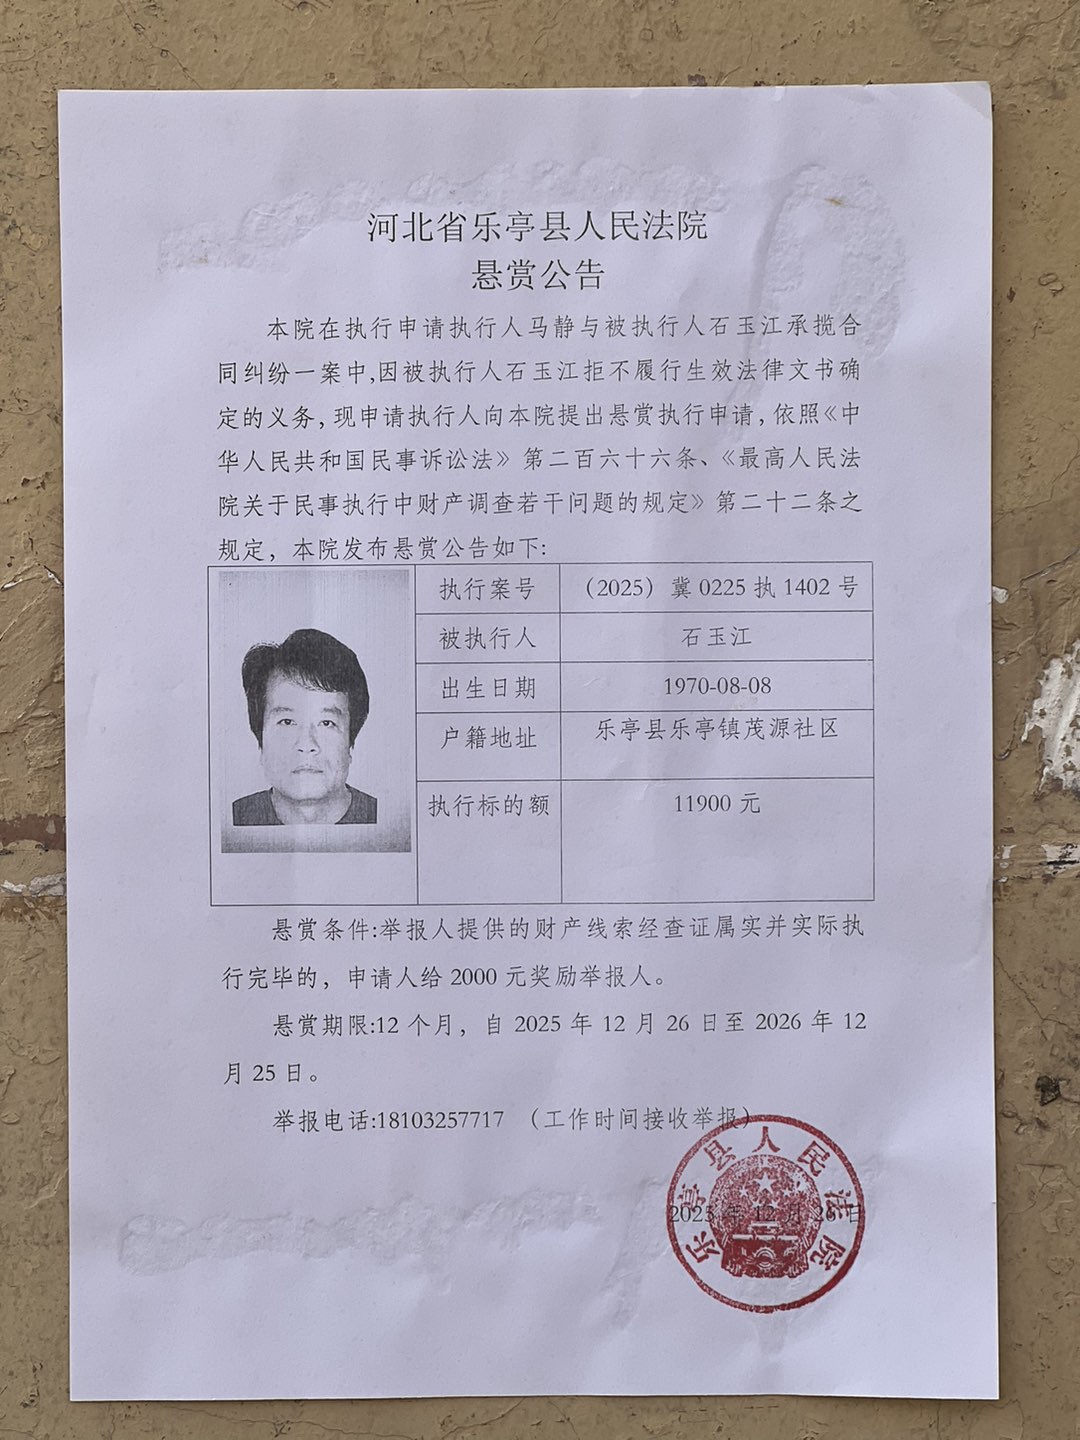 河北省乐亭县人民法院
悬赏公告
本院在执行申请执行人马静与被执行人石玉江承揽合
同纠纷一案中,因被执行人石玉江拒不履行生效法律文书确
定的义务，现申请执行人向本院提出悬赏执行申请，依照《中
华人民共和国民事诉讼法》第二百六十六条、《最高人民法
院关于民事执行中财产调查若干问题的规定》第二十二条之
规定，本院发布悬赏公告如下:
执行案号 （2025）冀 0225 执 1402 号
被执行人 石玉江
出生日期 1970-08-08
户籍地址 乐亭县乐亭镇茂源社区
执行标的额 11900 元
悬赏条件:举报人提供的财产线索经查证属实并实际执
行完毕的，申请人给 2000 元奖励举报人。
悬赏期限:12 个月，自 2025 年 12 月 26 日至 2026 年 12
月 25 日。
举报电话:18103257717 （工作时间接收举报）
2025 年 12 月 26 日
乐亭县人民法院